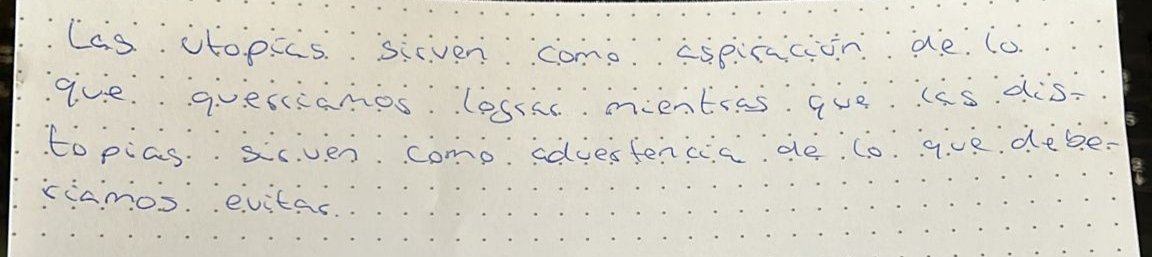 Las utopías sirven como aspiración de lo
que querríamos lograr mientras que las dis-
topias sirven como advertencia de lo que debe-
ríamos evitar.